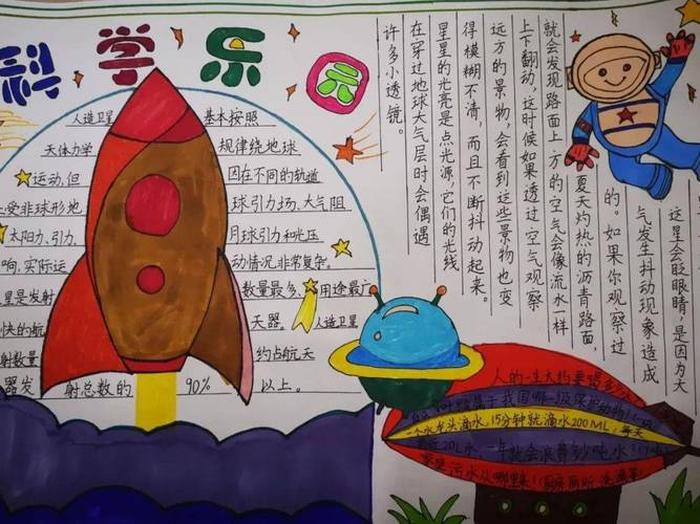 科学乐园
人造卫星 基本按照
天体力学 规律绕地球
运动,但 因在不同的轨道
受非球形地 球引力场、大气阻
太阳力、引力、 月球引力和光压
响,实际运 动情况非常复杂。
星是发射 数量最多、用途最广
快的航 天器。人造卫星
射数量 约占航天
器发 射总数的 90% 以上。
这星会眨眼睛,是因为大
气发生抖动现象造成
的。如果你观察过
夏天灼热的沥青路面,
就会发现路面上方的空气会像流水一样
上下翻动,这时候如果透过空气观察
远方的景物,会看到这些景物也变
得模糊不清,而且不断抖动起来。
星星的光亮是点光源,它们的光线
在穿过地球大气层时会偶遇
许多小透镜。
人的一生大约要喝多少
属于我国哪一级保护动物
一个水龙头滴水,15分钟就滴水200ML,每天
20L水,一年就会浪费多少吨水
污水从哪里来